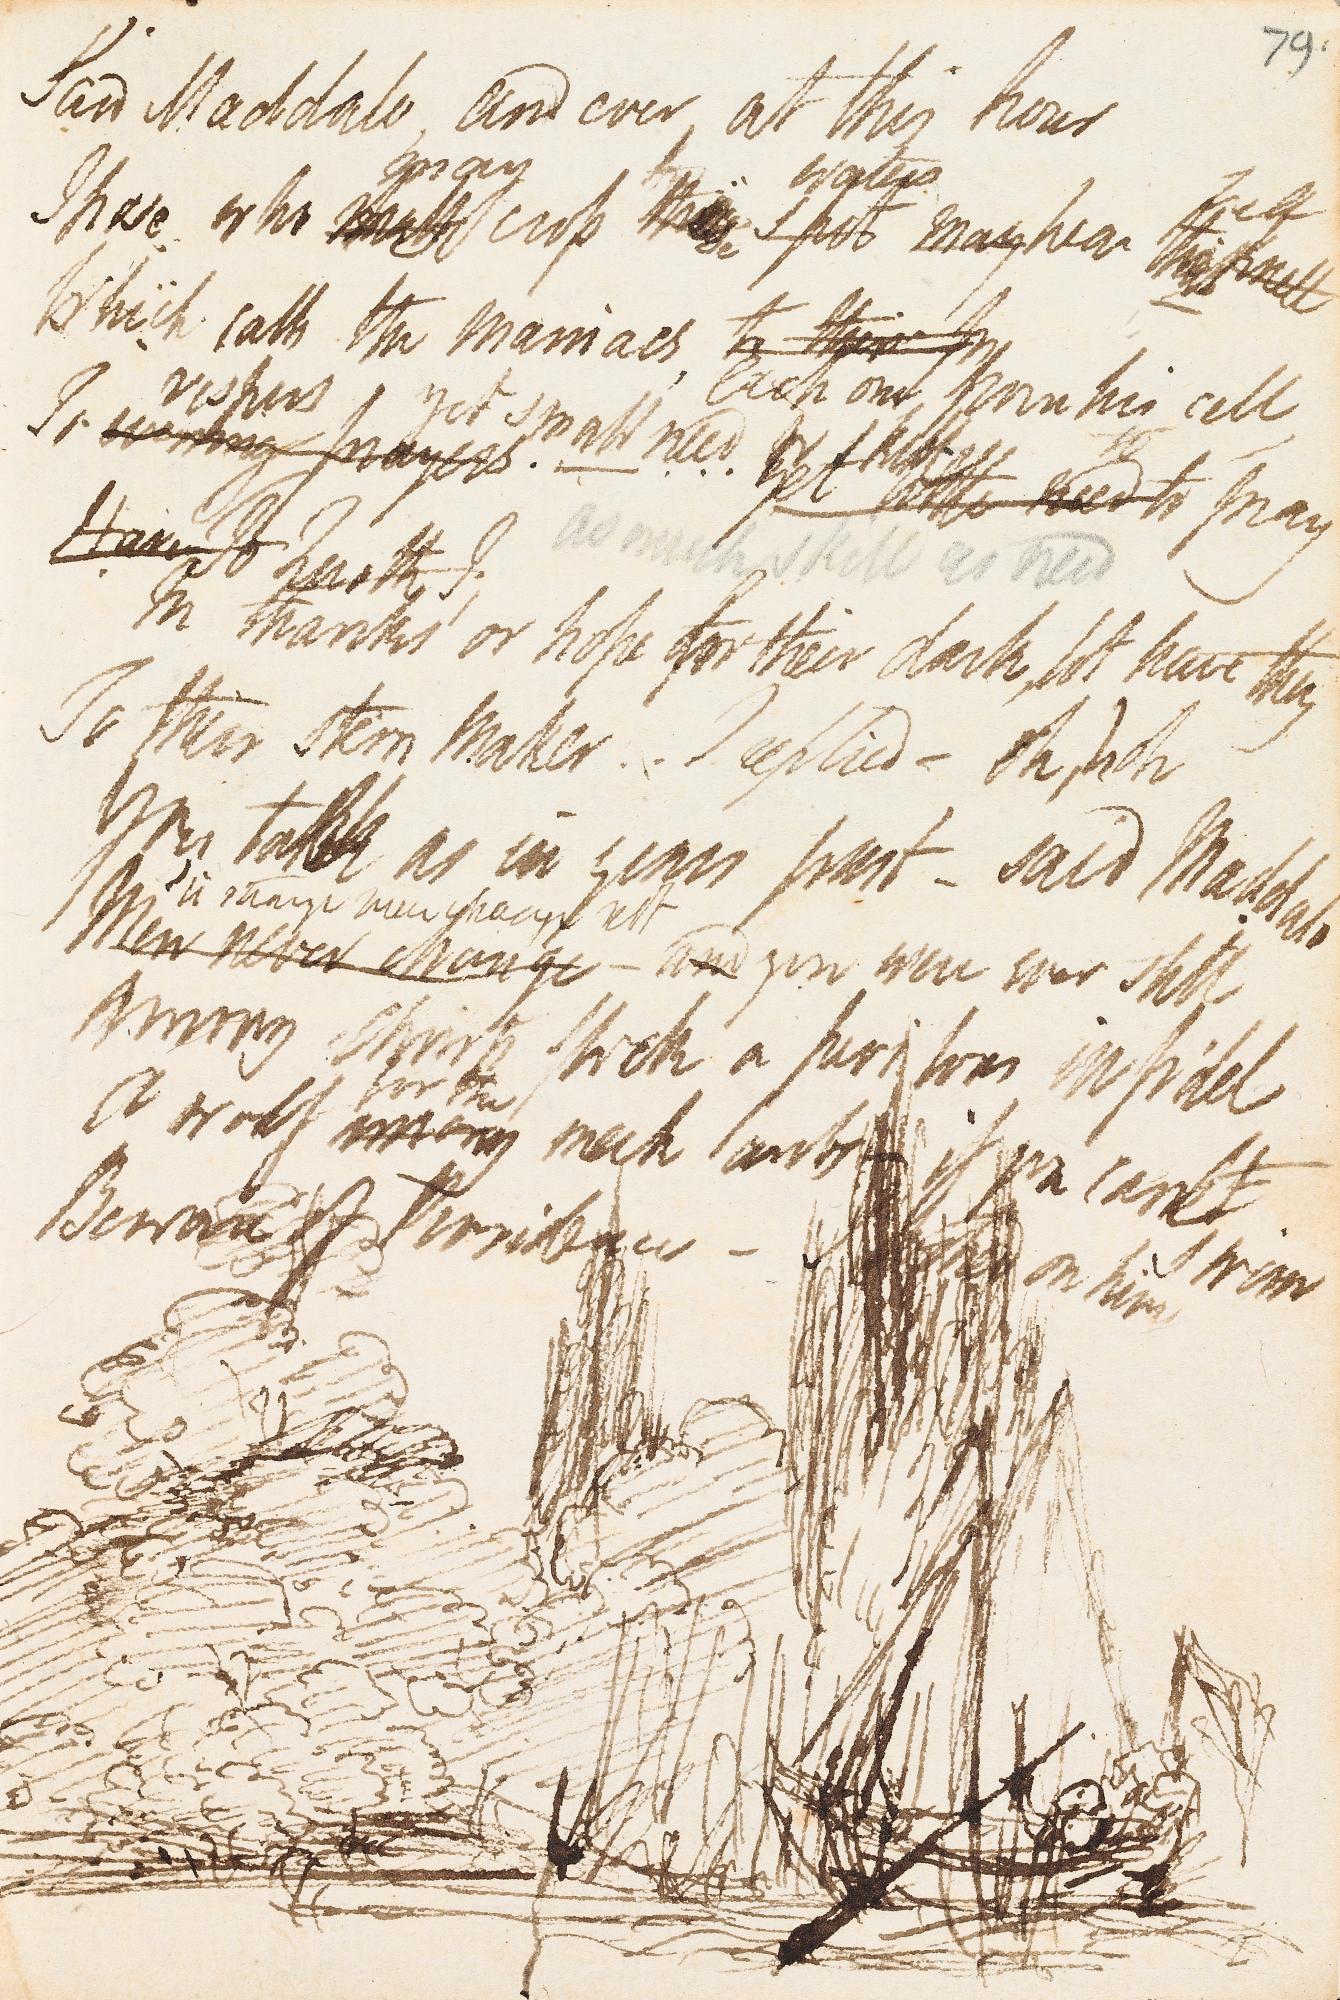 79.
Said Maddalo, and ever at this hour
gondray waters
Those who may cross this spot may hear itself
Which calls the maniacs to their
each one from his cell
vespers, yet small need
To evening prayers. Yet little need to pray
as much skill as need
In thanks or hope for their dark lot have they
To their stern Maker... I replied - Oh, ho
You talk as in years past - said Maddalo
Tis strange men change not
Men never change - and you were ever still
Among Christs flock a perilous infidel
for the
A wolf among meek lambs - if you cant
swim
Beware of Providence - on him